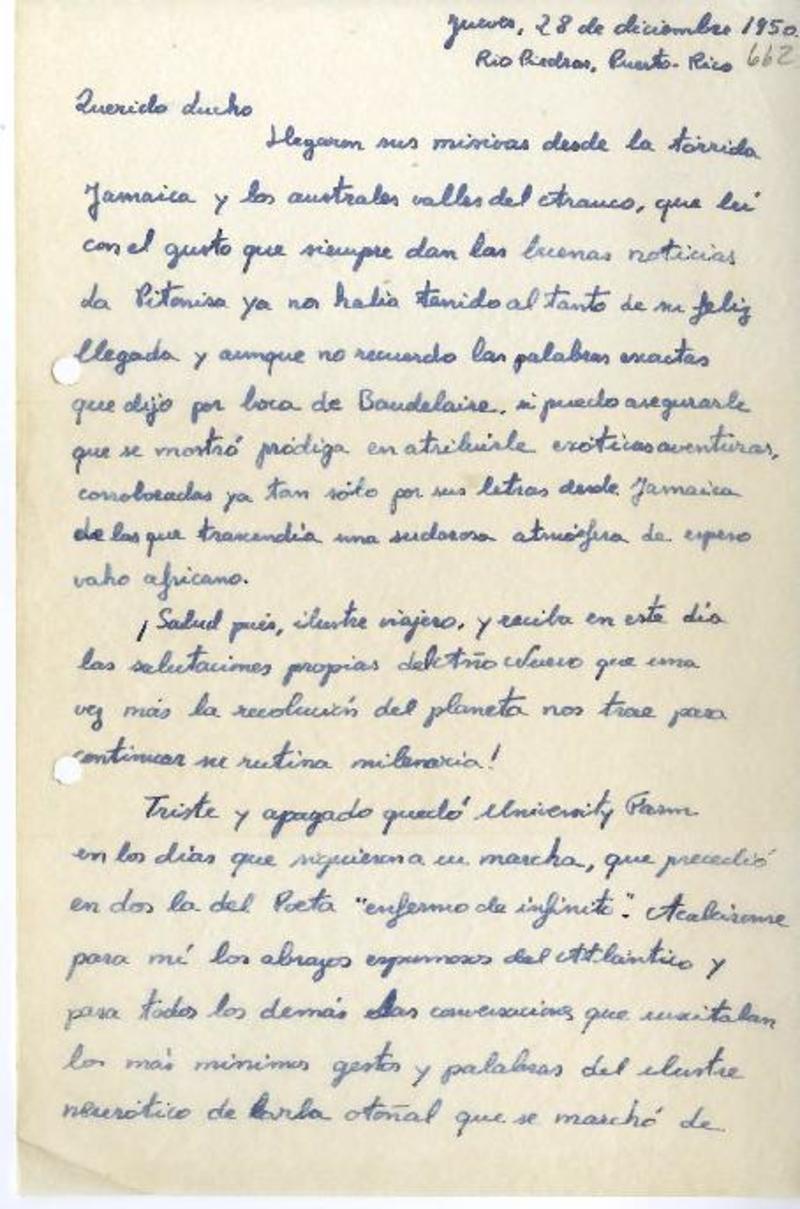 Jueves, 28 de diciembre 1950.
Rio Piedras, Puerto-Rico 662
Querido Lucho
Llegaron sus misivas desde la tórrida
Jamaica y los australes valles del Arauco, que leí
con el gusto que siempre dan las buenas noticias
La Pitonisa ya nos había tenido al tanto de su feliz
llegada y aunque no recuerdo las palabras exactas
que dijo por boca de Baudelaire, si puedo asegurarle
que se mostró pródiga en atribuirle exóticas aventuras,
corroboradas ya tan sólo por sus letras desde Jamaica
de las que trascendía una sudorosa atmósfera de espeso
vaho africano.
¡Salud pués, ilustre viajero, y reciba en este día
las salutaciones propias del Año Nuevo que una
vez más la revolución del planeta nos trae para
continuar su rutina milenaria!
Triste y apagado quedó University Farm
en los días que siguieron a su marcha, que precedió
en dos la del Poeta "enfermo de infinito". Acabáronse
para mí los abrazos espumosos del Atlántico y
para todos los demás las conversaciones que suscitaban
los más mínimos gestos y palabras del ilustre
neurótico de barba otoñal que se marchó de